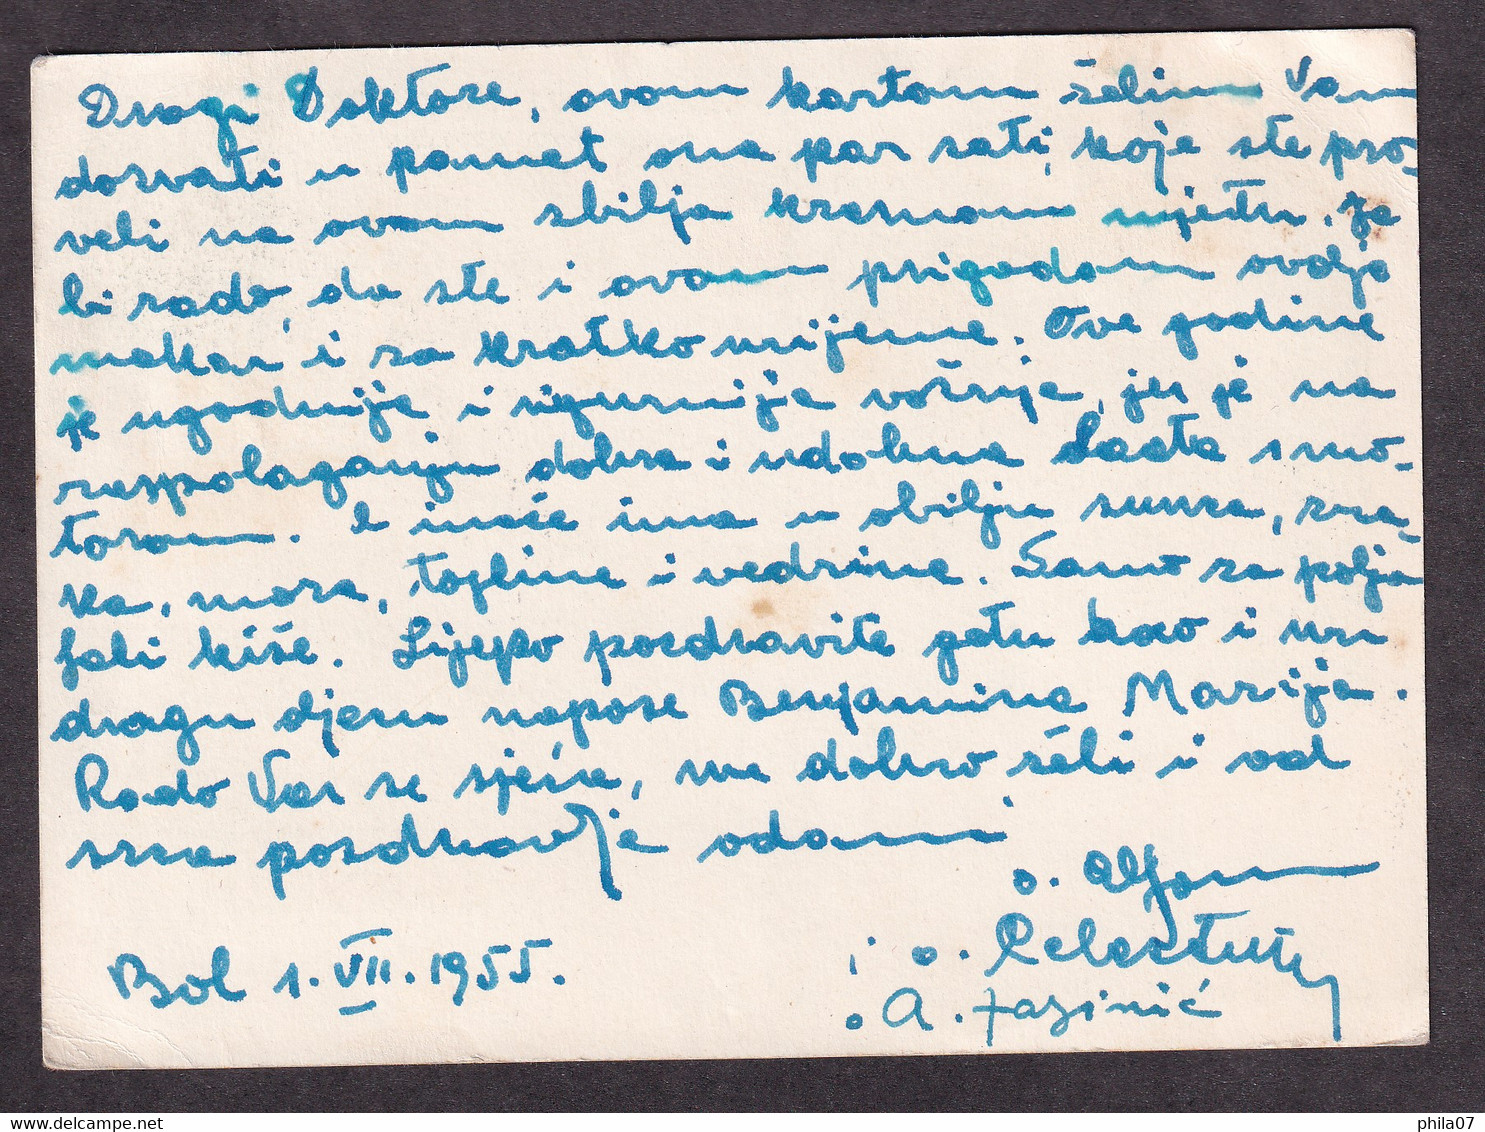 Dragi Doktore, ovom kartom želim Vam
dozvati u pamet ona par sati, koje ste pro-
veli na ovom zbilja krasnom mjestu. Ja
bi rado, da ste i ovom prigodom ovdje
makar i za kratko vrijeme. Ove godine
je ugodnije i sigurnije vožnje, jer je na
raspolaganju dobra i udobna barka s mo-
torom. I inače ima u obilju sunca, zra-
ka, mora, topline i vedrine. Samo za polja
fali kiše. Lijepo pozdravite gđu kao i svu
dragu djecu napose Benjamina Marija.
Rado Vas se sjeća, sve dobro želi i od
srca pozdravlje odani
o. Alfons
i o. Celestin
Bol 1. VII. 1955.
o A. Fazinić
www.delcampe.net
phila07